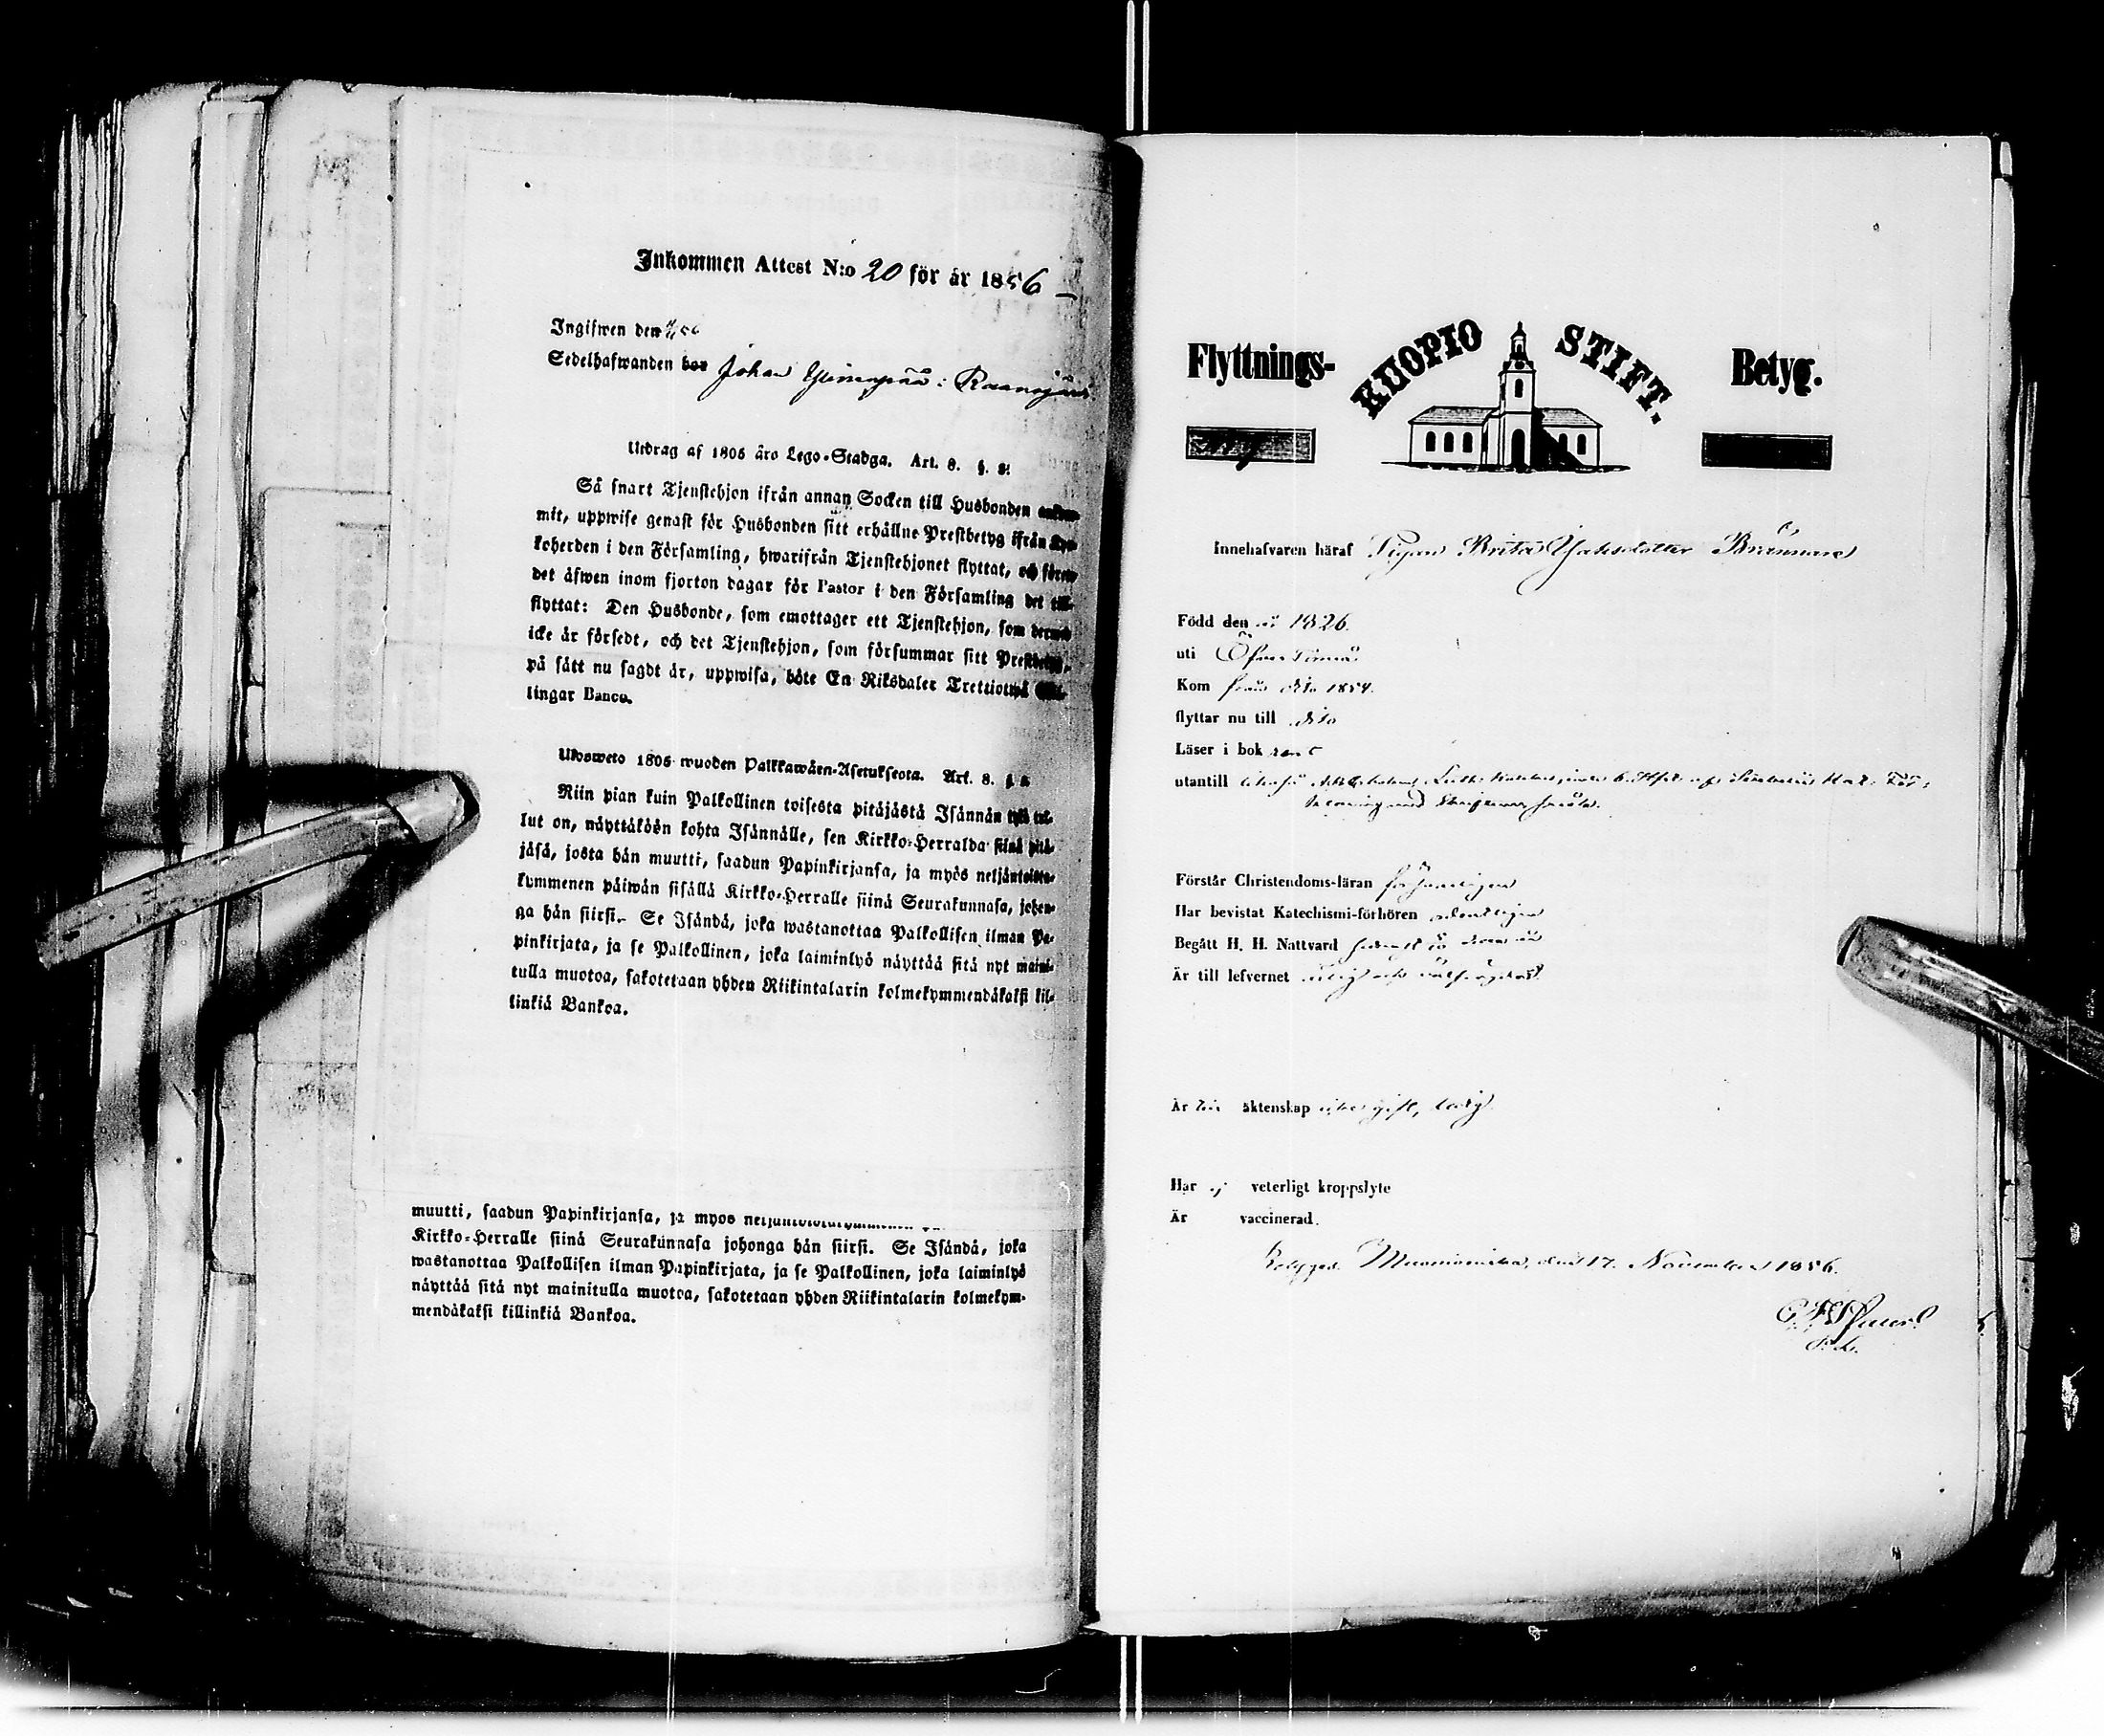 Inkommen Attest N:o 20 för år 1856
Ingifwen den
Sedelhafwanden bor Johan i
Utdrag af 1805 års Lego-Stadga. Art. 8. §. 2:
Så snart Tjenstehjon ifrån annan Socken till Husbonden
mit, uppwise genast för Husbonden sitt erhållne Prestbetyg ifrån
koherden i den Församling, hwarifrån Tjenstehjonet flyttat, och
det åfwen inom fjorton dagar för Pastor i den Församling det till-
flyttat: Den Husbonde, som emottager ett Tjenstehjon, som dermed
icke år försedt, och det Tjenstehjon, som försummar sitt Prestbetyg,
på sätt nu sagdt år, uppwisa, böte En Riksdaler Trettiotwå
lingar Banco.
Ulosweto 1805 wuoden Palkkawåen-Asetuksesta. Art. 8. §.
Niin pian kuin Palkollinen toisesta pitåjåstå Isånnån tykö tul-
lut on, nåyttåköön kohta Isånnålle, sen Kirkko-Herralda siinå pitå-
jåså, josta hån muutti, saadun Papinkirjansa, ja myös neljåntoista-
kymmenen påiwån sisållå Kirkko-Herralle siinå Seurakunnasa, johon-
ga hån siirsi. Se Isåndå, joka wastanottaa Palkollisen ilman Pa-
pinkirjata, ja se Palkollinen, joka laiminlyö nåyttåå sitå nyt maini-
tulla muotoa, sakotetaan yhden Riikintalarin kolmekymmendåkaksi kil-
linkiå Bankoa.
muutti, saadun Papinkirjansa, ja myos
Kirkko-Herralle siinå Seurakunnasa johonga hån siirsi. Se Isåndå, joka
wastanottaa Palkollisen ilman Papinkirjata, ja se Palkollinen, joka laiminlyö
nåyttåå sitå nyt mainitulla muotoa, sakotetaan yhden Riikintalarin kolmekym-
mendåkaksi killinkiå Bankoa.
Flyttnings- KUOPIO STIFT. Betyg.
Innehafvaren häraf Pigan Brita Brännare
Född den år 1826.
uti Öfver Torneå
Kom från dito 1854.
flyttar nu till dito
Läser i bok rent
utantill
Förstår Christendoms-läran försvarligen
Har bevistat Katechismi-förhören ordentligen
Begått H. H. Nattvard
Är till lefvernet ärlig och välfrägdad.
Är till äktenskap icke gift, ledig.
Har ej veterligt kroppslyte
Är vaccinerad.
Betygad. Muonionniska, den 17. November 1856.